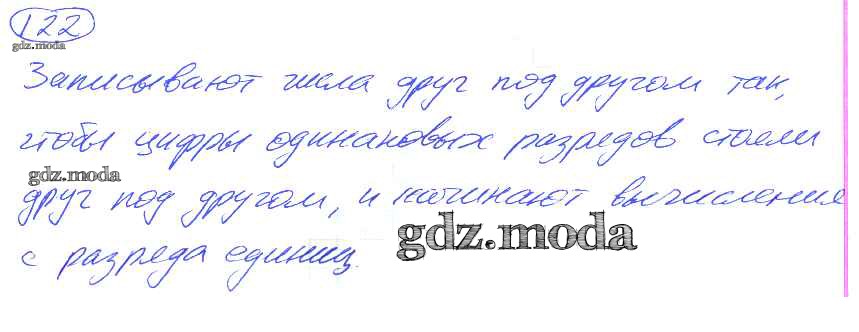 122
gdz.moda
Записывают числа друг под другом так,
чтобы цифры одинаковых разрядов стояли
gdz.moda
друг под другом, и начинают вычисления
с разряда единиц.
gdz.moda